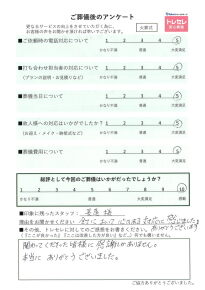 ご葬儀後のアンケート
更なるサービスの向上をさせていただく為に、
お客様の声をお聞かせ頂ければ幸いでございます。
火葬式
トレセレ
■ご依頼時の電話対応について
1 2 3 4 5
かなり不満 普通 大変満足
■打ち合わせ担当者の対応について
(プランの説明・お見積りなど)
1 2 3 4 5
かなり不満 普通 大変満足
■葬儀当日について
1 2 3 4 5
かなり不満 普通 大変満足
■故人様への対応はいかがでしたか?
(お迎え・メイク・納棺式など)
1 2 3 4 5
かなり不満 普通 大変満足
■葬儀費用について
1 2 3 4 5
かなり不満 普通 大変満足
総評として今回のご葬儀はいかがだったでしょうか?
1 2 3 4 5 6 7 8 9 10
かなり不満 普通 大変満足
■印象に残ったスタッフ:
理由をお聞かせください
■その他、トレセレに対してのご感想をお書きください。
ありがとうございました。
関わってくださった皆様に感謝しかありません。
本当に ありがとうございました。
ご協力ありがとうございました。